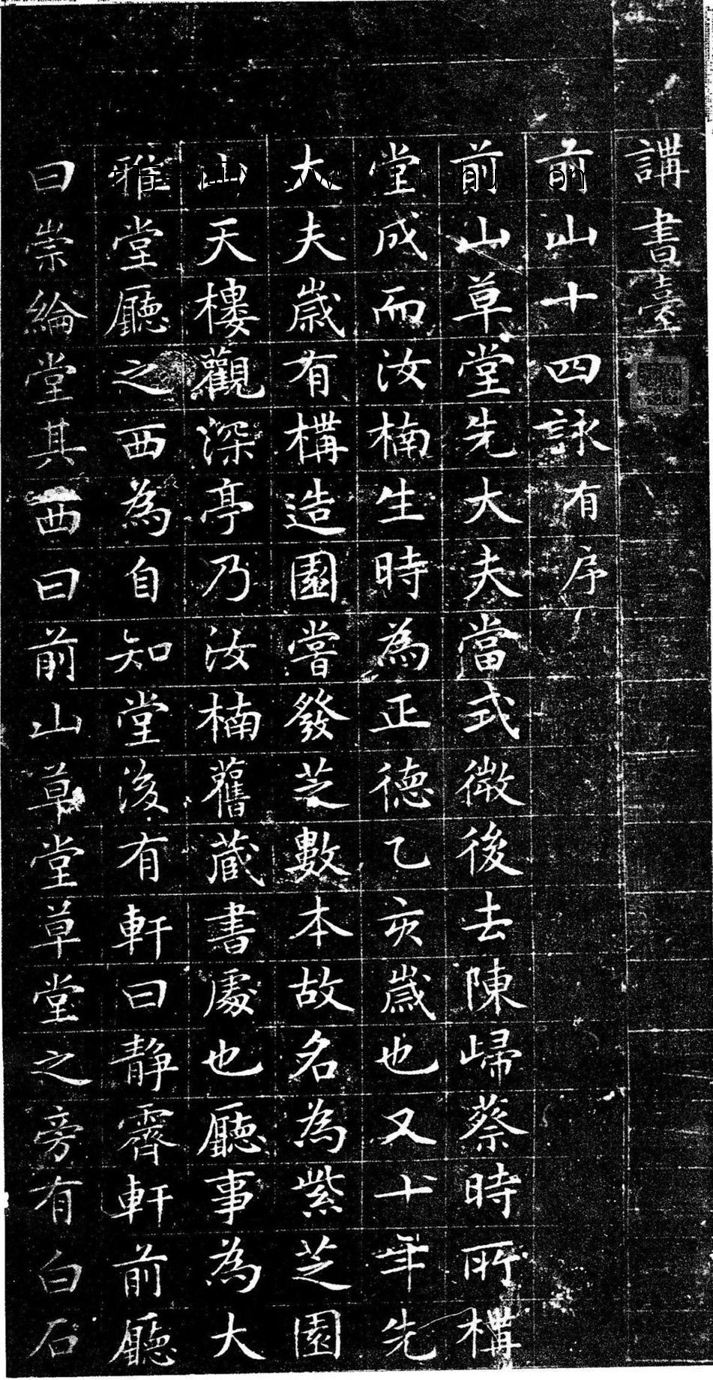 講書臺
前山十四詠有序
前山草堂先大夫當式微後去陳歸蔡時所構
堂成而汝楠生時為正德乙亥歲也又十年先
大夫歲有構造園嘗發芝數本故名為紫芝園
山天樓觀深亭乃汝楠舊藏書處也廳事為大
雅堂廳之西為自知堂後有軒曰靜齋軒前廳
曰崇綸堂其西曰前山草堂草堂之旁有白石